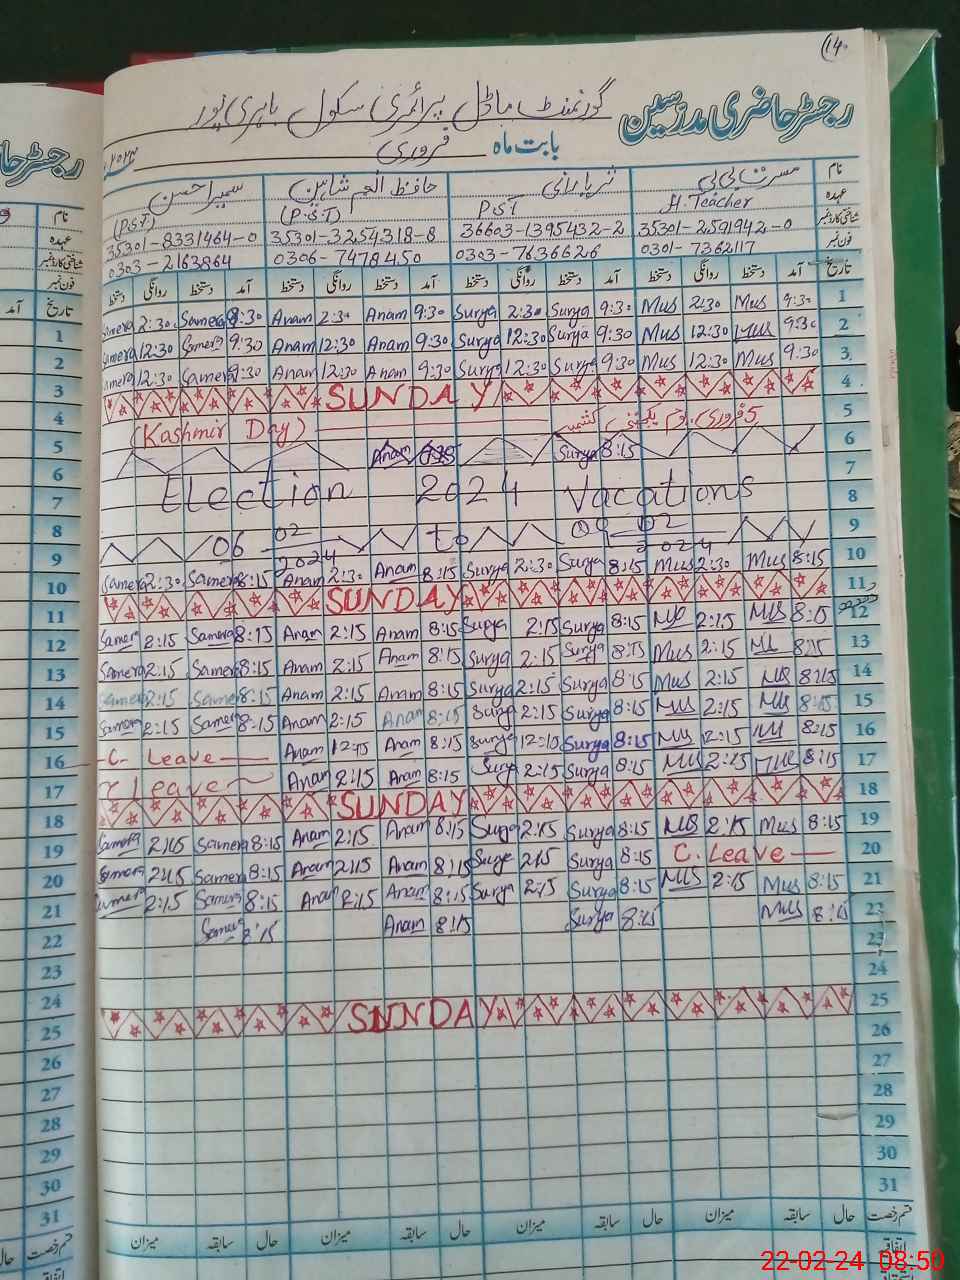 14
رجسٹر حاضری مدرسین گورنمنٹ ماڈل پرائمری سکول
بابت ماہ فروری
نام مسرت بی بی ثریا رانی حافظ انعم شاہین سمیرا حسن
عہدہ H.Teacher PST (P.S.T) (P.S.T)
شناختی کارڈ نمبر 35301-2591942-0 36603-1395432-2 35301-3254318-8 35301-8331464-0
فون نمبر 0301-7362117 0303-7636626 0306-7478450 0303-2163864
تاریخ آمد دستخط روانگی دستخط آمد دستخط روانگی دستخط آمد دستخط روانگی دستخط آمد دستخط روانگی دستخط
Samera 2:30 Samera 9:30 Anam 2:30 Anam 9:30 Surya 2:30 Surya 9:30 Mus 2:30 Mus 9:30 1
Samera 12:30 Samera 9:30 Anam 12:30 Anam 9:30 Surya 12:30 Surya 9:30 Mus 12:30 Mus 9:30 2
Samera 12:30 Samera 9:30 Anam 12:30 Anam 9:30 Surya 12:30 Surya 9:30 Mus 12:30 Mus 9:30 3
SUNDAY 4
(Kashmir Day) 5 فروری یوم یکجہتی کشمیر 5
Anam Surya 8:15 6
7
Election 2024 Vacations 8
06 02 2024 to 09 02 2024 9
Samera 2:30 Samera 8:15 Anam 2:30 Anam 8:15 Surya 2:30 Surya 8:15 Mus 2:30 Mus 8:15 10
SUNDAY 11
Samera 2:15 Samera 8:15 Anam 2:15 Anam 8:15 Surya 2:15 Surya 8:15 MS 2:15 MUS 8:15 12
Samera 2:15 Samera 8:15 Anam 2:15 Anam 8:15 Surya 2:15 Surya 8:15 Mus 2:15 8:15 13
Samera 2:15 Samera 8:15 Anam 2:15 Anam 8:15 Surya 2:15 Surya 8:15 Mus 2:15 MS 8:15 14
Samera 2:15 Samera 8:15 Anam 2:15 Anam 8:15 Surya 2:15 Surya 8:15 MUS 2:15 MUS 8:15 15
C. Leave Anam 12:15 Anam 8:15 Surya 12:10 Surya 8:15 MUS 12:15 MUS 8:15 16
Leave Anam 2:15 Anam 8:15 Surya 2:15 Surya 8:15 MUS 2:15 MUS 8:15 17
SUNDAY 18
Samera 2:15 Samera 8:15 Anam 2:15 Anam 8:15 Surya 2:15 Surya 8:15 MUS 2:15 Mus 8:15 19
Samera 2:15 Samera 8:15 Anam 2:15 Anam 8:15 Surya 2:15 Surya 8:15 C. Leave 20
Samera 2:15 Samera 8:15 Anam 2:15 Anam 8:15 Surya 2:15 Surya 8:15 MUS 2:15 Mus 8:15 21
Samera 8:15 Anam 8:15 Surya 8:15 Mus 8:15 22
23
24
SUNDAY 25
26
27
28
29
30
31
قسم رخصت حال سابقہ میزان حال سابقہ میزان حال سابقہ میزان حال سابقہ میزان
اتفاقیہ
رجسٹر حا
نام
عہدہ
شناختی کارڈ نمبر
فون نمبر
تاریخ آمد
1
2
3
4
5
6
7
8
9
10
11
12
13
14
15
16
17
18
19
20
21
22
23
24
25
26
27
28
29
30
31
قسم رخصت حال
22-02-24 08:50